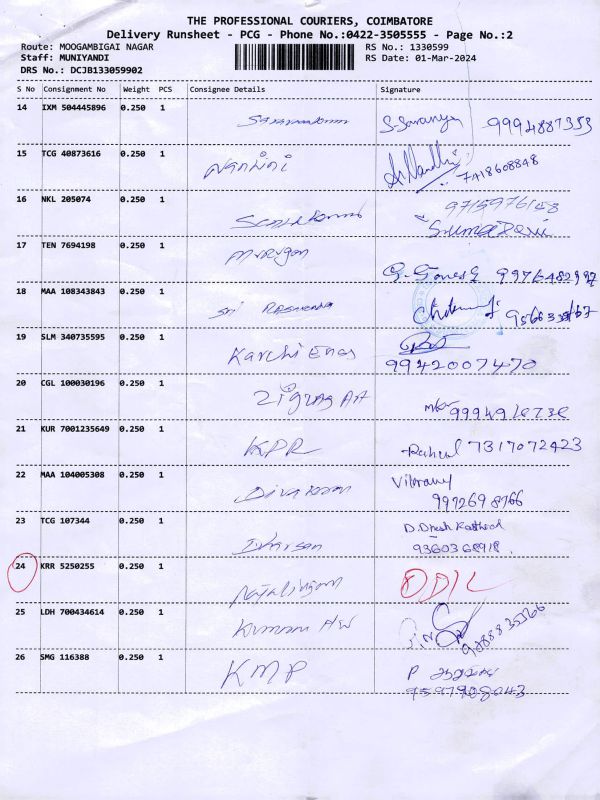 THE PROFESSIONAL COURIERS, COIMBATORE
Delivery Runsheet - PCG - Phone No.:0422-3505555 - Page No.:2
Route: MOOGAMBIGAI NAGAR RS No.: 1330599
Staff: MUNIYANDI RS Date: 01-Mar-2024
DRS No.: DCJB133059902
S No Consignment No Weight PCS Consignee Details Signature
14 IXM 504445896 0.250 1 S. Saranya 9994887353
15 TCG 40873616 0.250 1 Nandini 7418608848
16 NKL 205074 0.250 1 9715976158
Suma Devi
17 TEN 7694198 0.250 1 Murugan
G. Ganesh 9976482997
18 MAA 108343843 0.250 1 Sri
19 SLM 340735595 0.250 1 Karchi Engs
9942007470
20 CGL 100030196 0.250 1
21 KUR 7001235649 0.250 1 KPR Rahul 7317072423
22 MAA 104005308 0.250 1 Divakaran
9972698766
23 TCG 107344 0.250 1
9360368918.
24 KRR 5250255 0.250 1 ODIL
25 LDH 700434614 0.250 1 Kumaran H/W
26 SMG 116388 0.250 1 KMP P
9597908043